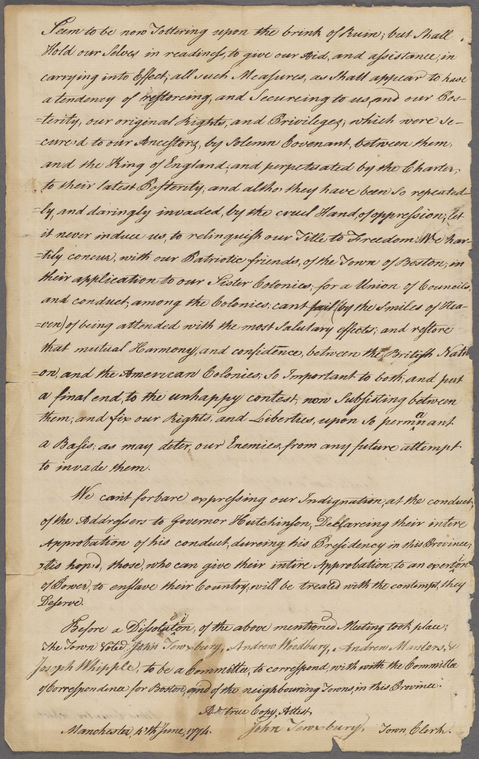 Seem to be now Tottering upon the brink of Ruin; but Shall
Hold our Selves in readiness, to give our Aid, and assistance, in
carrying into Effect, all Such Measures, as Shall appear to have
a tendency of restoreing, and Secureing to us, and our Pos-
=terity, our original Rights, and Privileges, which were Se-
=cured to our Ancestors, by Solemn Covenant, between them,
and the King of England; and perpetuated by the Charter,
to their latest Posterity, and altho they have been So repeated-
=ly, and daringly invaded, by the cruel Hand of oppression; let
it never induce us, to relinquish our Title to Freedom. We har-
=tily concur, with our Patriotic friends, of the Town of Boston, in
their application to our Sister Colonies, for a Union of Councils,
and conduct, among the Colonies, cant fail (by the Smiles of Hea-
=ven) of being attended with the most Salutary effects; and restore
that mutual Harmony, and confidence, between the British Nati-
=on, and the American Colonies, So Important to both, and put
a final end, to the unhappy contest, now Subsisting between
them; and fix our Rights, and Liberties, upon So permanant
a Basis, as may deter, our Enemies, from any future attempt
to invade them.
We cant forbare expressing our Indignation, at the conduct,
of the Addressers to Governor Hutchinson, Declareing their intire
Approbation of his conduct, dureing his Presidency in this Province;
tis hop'd, those, who can give their intire Approbation, to an exertion
of Power, to enslave their Country, will be treated with the contempt, they
Deserve.
Before a Dissolution, of the above mentioned Meeting took place;
The Town Voted John Tewxbury, Andrew Woodbury, Andrew Masters, &
Joseph Whipple, to be a Committe, to correspond, with with the Committe
of Correspondence for Boston, and of the neighbouring Towns, in this Province
A true Copy, Attest,
Manchester, 4th June, 1774. John Tewxbury, Town Clerk.